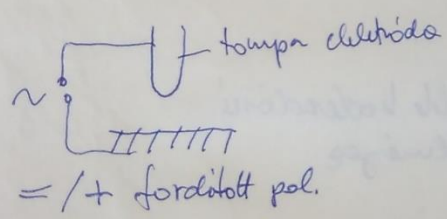 tompa elektróda
~
= / + fordított pol.